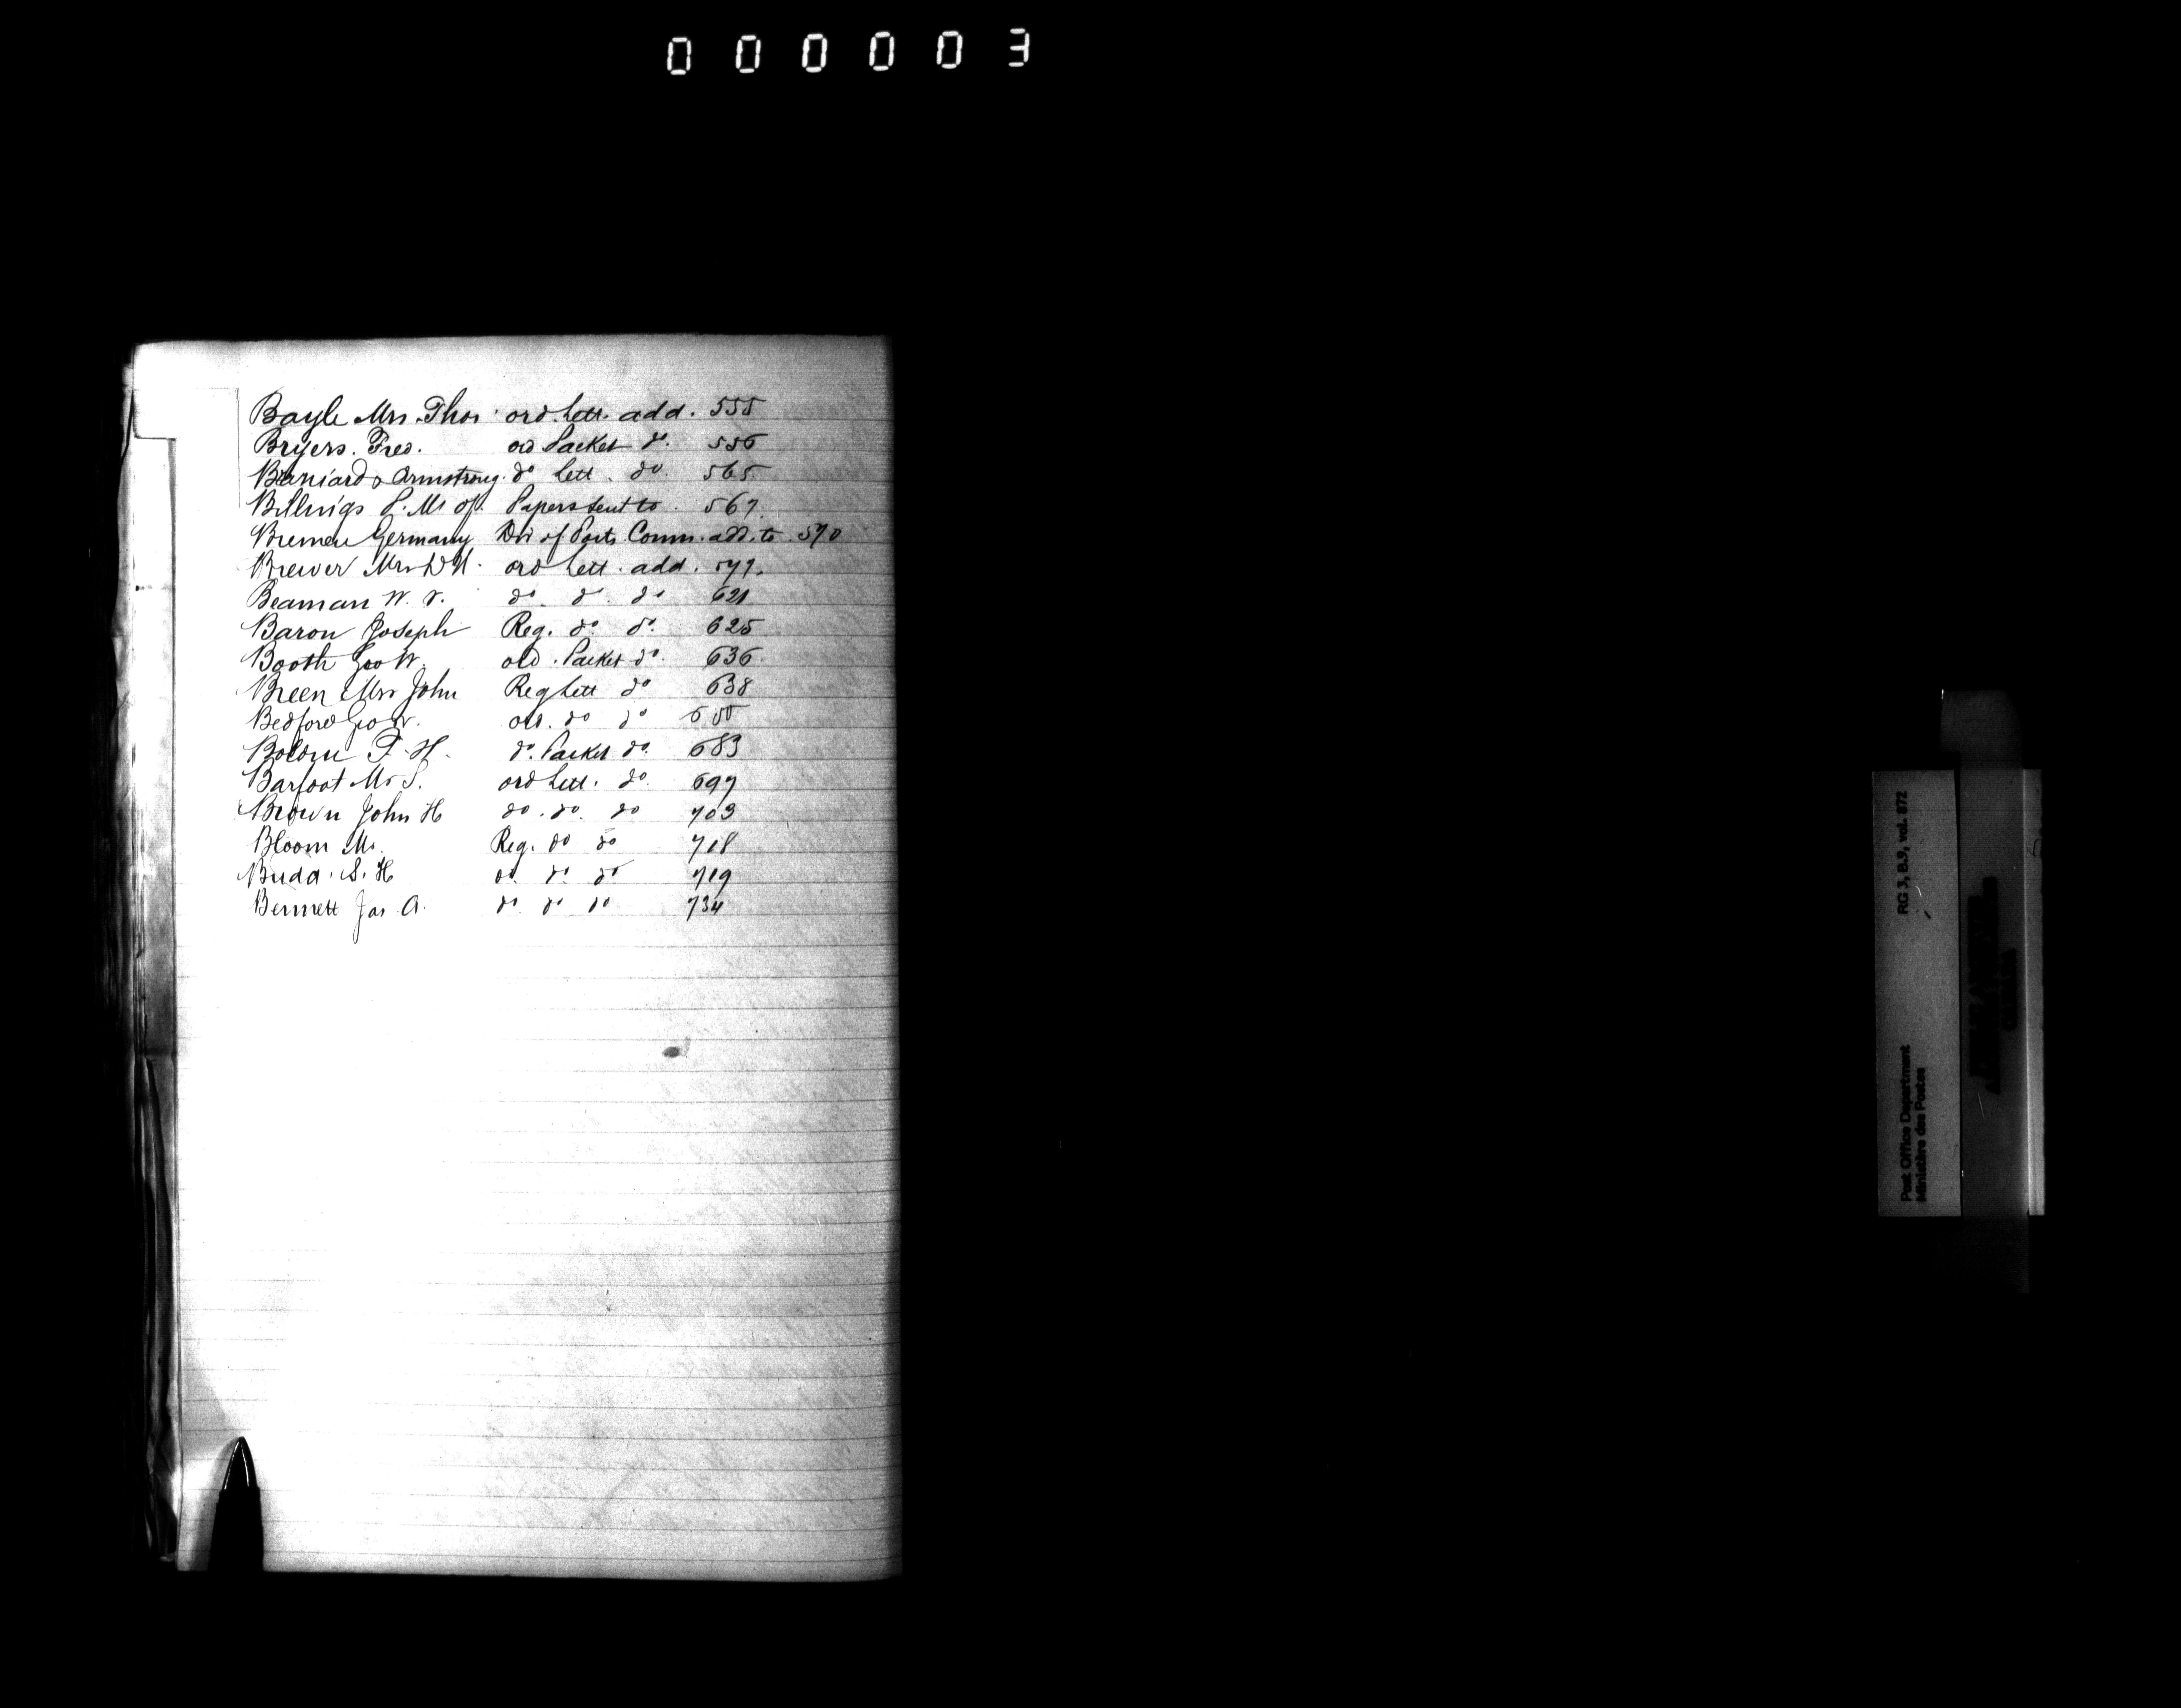 000003
Bayle Mrs. Thos. ord. Lett. add. 555
Bryers. Fred. od Packet do. 556
Barniard & Armstrong. do Lett. do. 565.
Billings P.M. of. Papers sent to. 567.
Bremen Germany Dir of Posts Comm. add. to. 570
Brewer Mrs ord Lett. add. 571.
Beaman W. do. do. do 621
Baron Joseph Reg. do. do. 625
Booth Geo W. old. Packet do. 636.
Breen Mrs John Reg Lett do 638
Bedford Geo W. od. do do 655
F. H. do. Packet do. 683
Barfoot Mr S. ord Lett. do. 697
Brown John H do. do. do 703
Bloom Mr. Reg. do do 718
Budd. S. H do. do. do 719
Bennett Jas A. do do do 734
RG 3, B.9, vol. 872
Post Office Department
Ministère des Postes